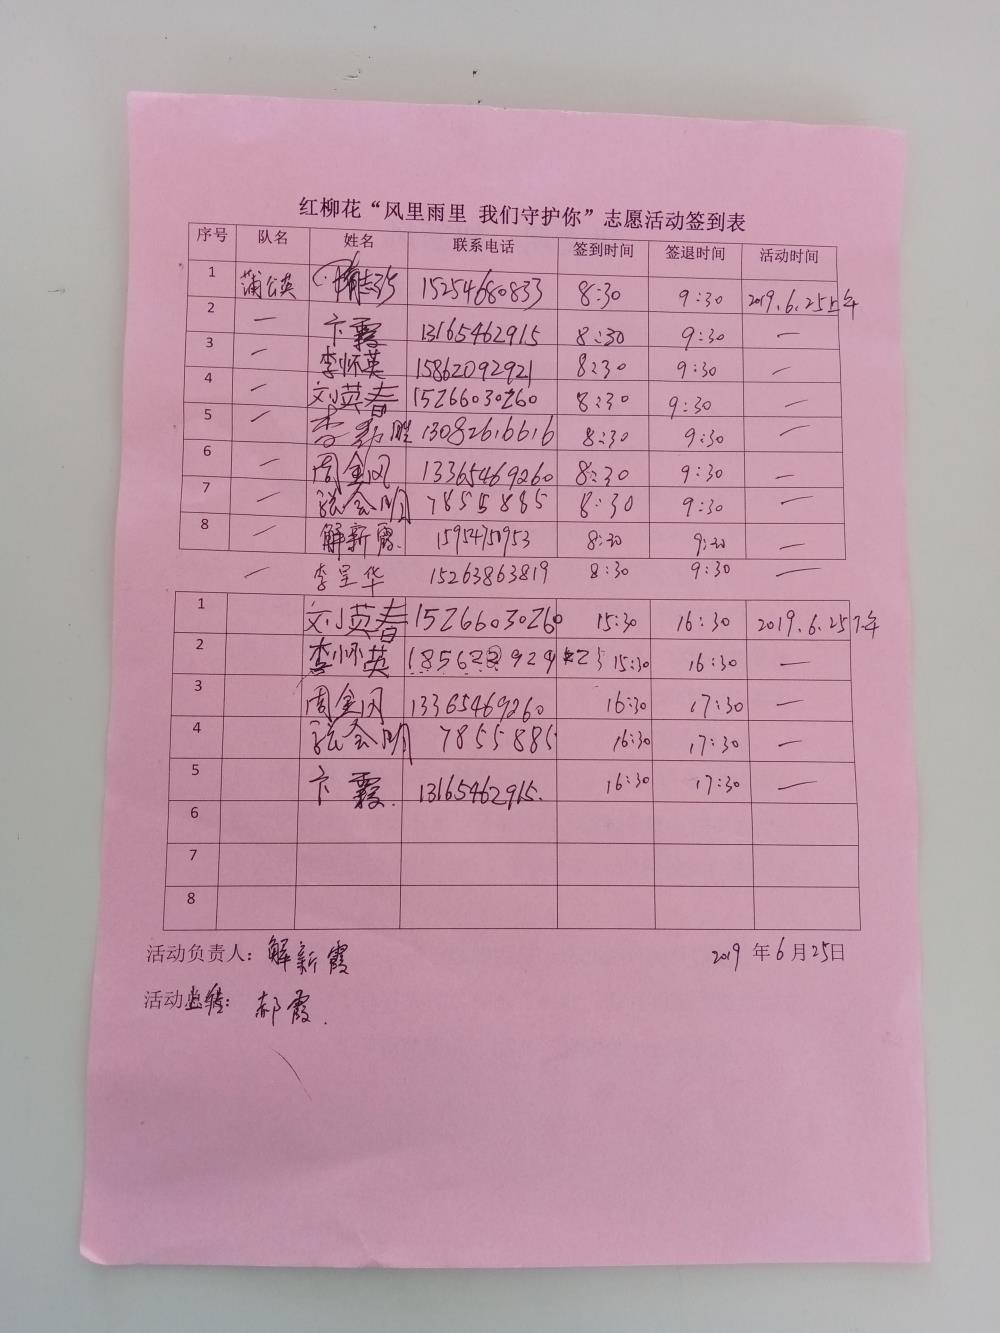 红柳花“风里雨里 我们守护你”志愿活动签到表
序号 队名 姓名 联系电话 签到时间 签退时间 活动时间
1 蒲公英 15254680833 8:30 9:30 2019.6.25上午
2 一 卞霞 13165462915 8:30 9:30 一
3 一 李怀英 15862092921 8:30 9:30 一
4 一 刘英春 15266030260 8:30 9:30 一
5 一 李 胜 13082616616 8:30 9:30 一
6 一 周金风 13365469260 8:30 9:30 一
7 一 张会明 7855885 8:30 9:30 一
8 一 解新霞. 15954751953 8:30 9:30 一
一 李呈华 15263863819 8:30 9:30 一
1 刘英春 15266030260 15:30 16:30 2019.6.25下午
2 李怀英 15:30 16:30 一
3 周金风 13365469260 16:30 17:30 一
4 张会明 7855885 16:30 17:30 一
5 卞霞. 13165462915. 16:30 17:30 一
6
7
8
活动负责人：解新霞 2019年6月25日
活动 ： 郝霞.